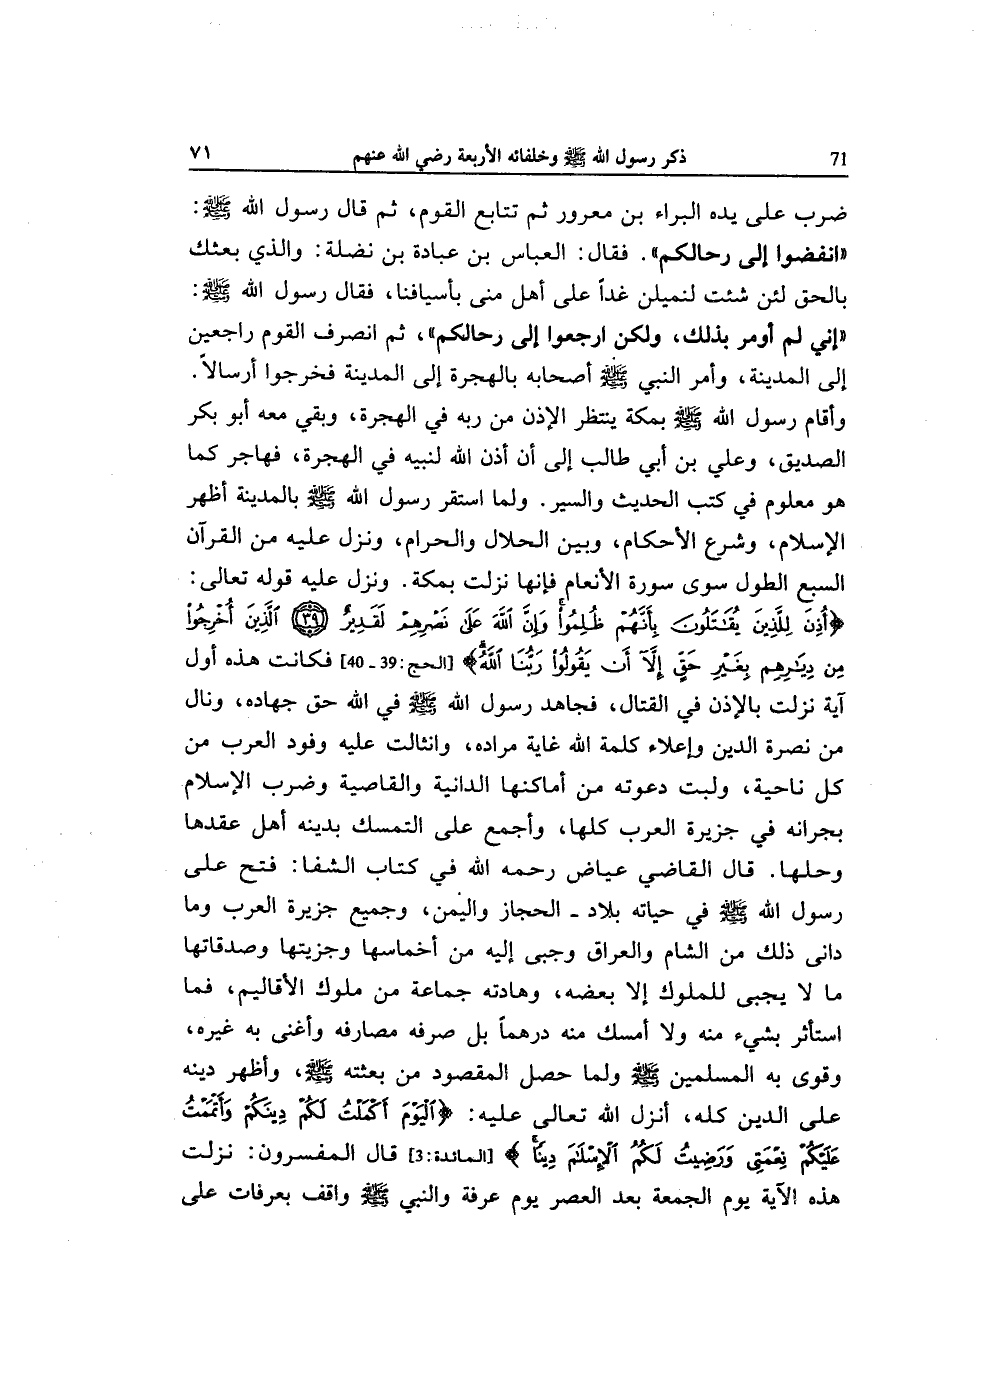 71 ذكر رسول الله ﷺ وخلفائه الأربعة رضي الله عنهم ٧١
ضرب على يده البراء بن معرور ثم تتابع القوم، ثم قال رسول الله ﷺ:
«انفضوا إلى رحالكم». فقال: العباس بن عبادة بن نضلة: والذي بعثك
بالحق لئن شئت لنميلن غداً على أهل منى بأسيافنا، فقال رسول الله ﷺ:
«إني لم أومر بذلك، ولكن ارجعوا إلى رحالكم»، ثم انصرف القوم راجعين
إلى المدينة، وأمر النبي ﷺ أصحابه بالهجرة إلى المدينة فخرجوا أرسالاً.
وأقام رسول الله ﷺ بمكة ينتظر الإذن من ربه في الهجرة، وبقي معه أبو بكر
الصديق، وعلي بن أبي طالب إلى أن أذن الله لنبيه في الهجرة، فهاجر كما
هو معلوم في كتب الحديث والسير. ولما استقر رسول الله ﷺ بالمدينة أظهر
الإسلام، وشرع الأحكام، وبين الحلال والحرام، ونزل عليه من القرآن
السبع الطول سوى سورة الأنعام فإنها نزلت بمكة. ونزل عليه قوله تعالى:
﴿أُذِنَ لِلَّذِينَ يُقَٰتَلُونَ بِأَنَّهُمْ ظُلِمُواْ وَإِنَّ ٱللَّهَ عَلَىٰ نَصْرِهِمْ لَقَدِيرٌ ۝٣٩ ٱلَّذِينَ أُخْرِجُواْ
مِن دِيَٰرِهِم بِغَيْرِ حَقٍّ إِلَّآ أَن يَقُولُواْ رَبُّنَا ٱللَّهُ﴾ [الحج: 39 ـ 40] فكانت هذه أول
آية نزلت بالإذن في القتال، فجاهد رسول الله ﷺ في الله حق جهاده، ونال
من نصرة الدين وإعلاء كلمة الله غاية مراده، وانثالت عليه وفود العرب من
كل ناحية، ولبت دعوته من أماكنها الدانية والقاصية وضرب الإسلام
بجرانه في جزيرة العرب كلها، وأجمع على التمسك بدينه أهل عقدها
وحلها. قال القاضي عياض رحمه الله في كتاب الشفا: فتح على
رسول الله ﷺ في حياته بلاد ـ الحجاز واليمن، وجميع جزيرة العرب وما
دانى ذلك من الشام والعراق وجبى إليه من أخماسها وجزيتها وصدقاتها
ما لا يجبى للملوك إلا بعضه، وهادته جماعة من ملوك الأقاليم، فما
استأثر بشيء منه ولا أمسك منه درهماً بل صرفه مصارفه وأغنى به غيره،
وقوى به المسلمين ﷺ ولما حصل المقصود من بعثته ﷺ، وأظهر دينه
على الدين كله، أنزل الله تعالى عليه: ﴿ٱلْيَوْمَ أَكْمَلْتُ لَكُمْ دِينَكُمْ وَأَتْمَمْتُ
عَلَيْكُمْ نِعْمَتِى وَرَضِيتُ لَكُمُ ٱلْإِسْلَٰمَ دِينًا﴾ [المائدة: 3] قال المفسرون: نزلت
هذه الآية يوم الجمعة بعد العصر يوم عرفة والنبي ﷺ واقف بعرفات على